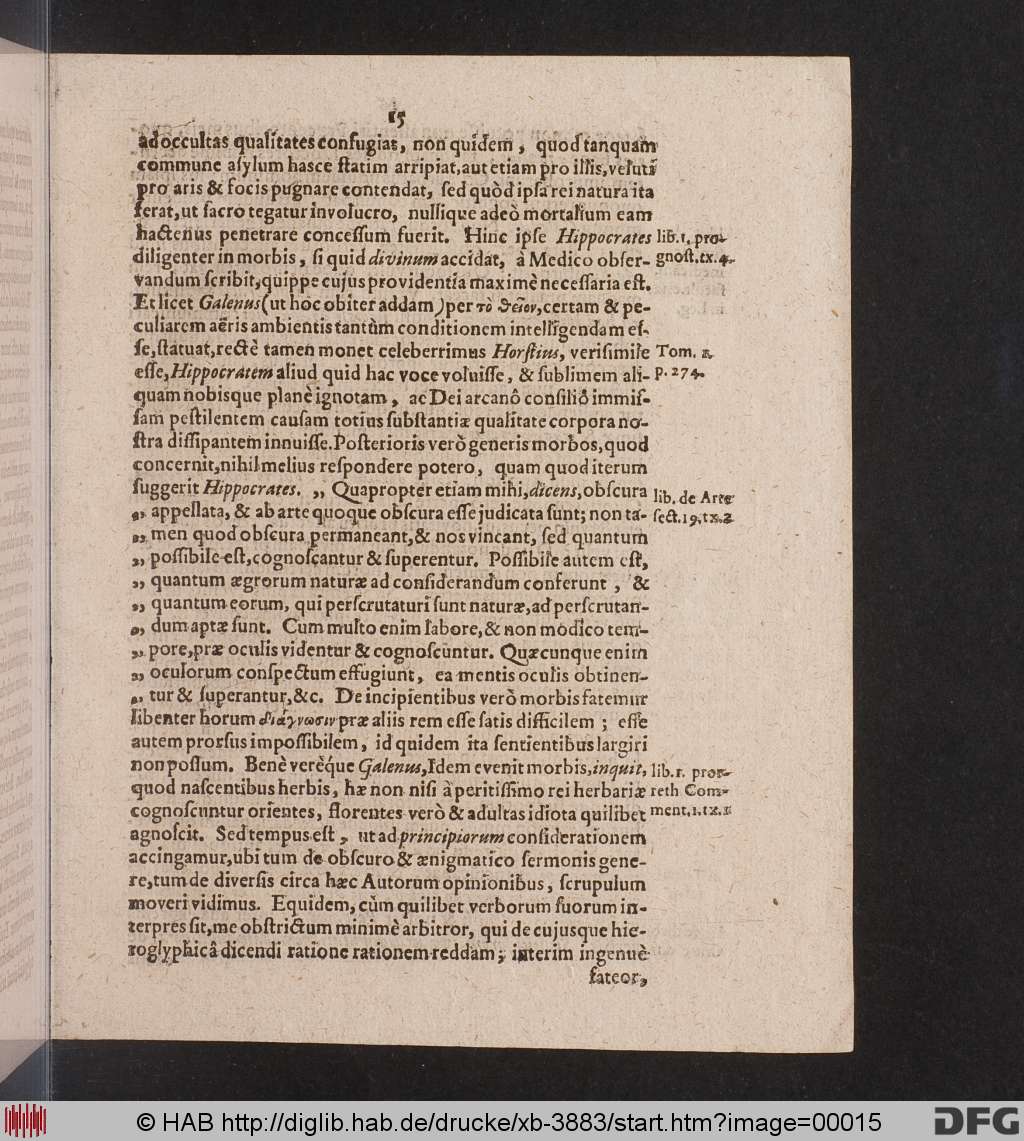 15
ad occultas qualitates confugiat, non quidem, quod tanquam
commune asylum hasce statim arripiat, aut etiam pro illis, veluti
pro aris & focis pugnare contendat, sed quòd ipsa rei natura ita
ferat, ut sacro tegatur involucro, nullique adeò mortalium eam
hactenus penetrare concessum fuerit. Hinc ipse Hippocrates
lib. 1. pro-
diligenter in morbis, si quid divinum accidat, à Medico obser-
gnost. tx. 4.
vandum scribit, quippe cujus providentia maximè necessaria est.
Et licet Galenus (ut hoc obiter addam) per τὸ θεῖον, certam & pe-
culiarem aëris ambientis tantùm conditionem intelligendam es-
se, statuat, rectè tamen monet celeberrimus Horstius, verisimile
Tom. 2.
esse, Hippocratem aliud quid hac voce voluisse, & sublimem ali-
p. 274.
quam nobisque planè ignotam, ac Dei arcanô consiliô immis-
sam pestilentem causam totius substantiæ qualitate corpora no-
stra dissipantem innuisse. Posterioris verò generis morbos, quod
concernit, nihil melius respondere potero, quam quod iterum
suggerit Hippocrates. „ Quapropter etiam mihi, dicens, obscura
lib. de Arte
„ appellata, & ab arte quoque obscura esse judicata sunt; non ta-
sect. 19. tx. 2
„ men quod obscura permaneant, & nos vincant, sed quantum
„ possibile est, cognoscantur & superentur. Possibile autem est,
„ quantum ægrorum naturæ ad considerandum conferunt, &
„ quantum eorum, qui perscrutaturi sunt naturæ, ad perscrutan-
„ dum aptæ sunt. Cum multo enim labore, & non modico tem-
„ pore, præ oculis videntur & cognoscuntur. Quæcunque enim
„ oculorum conspectum effugiunt, ea mentis oculis obtinen-
„ tur & superantur, &c. De incipientibus verò morbis fatemur
libenter horum διάγνωσιν præ aliis rem esse satis difficilem; esse
autem prorsus impossibilem, id quidem ita sentientibus largiri
non possum. Benè verèq́ue Galenus, Idem evenit morbis, inquit,
lib. 1. pror-
quod nascentibus herbis, hæ non nisi à peritissimo rei herbariæ
reth Com-
cognoscuntur orientes, florentes verò & adultas idiota quilibet
ment. 1. tx. 1
agnoscit. Sed tempus est, ut ad principiorum considerationem
accingamur, ubi tum de obscuro & ænigmatico sermonis gene-
re, tum de diversis circa hæc Autorum opinionibus, scrupulum
moveri vidimus. Equidem, cùm quilibet verborum suorum in-
terpres sit, me obstrictum minimè arbitror, qui de cujusque hie-
roglyphicâ dicendi ratione rationem reddam; interim ingenuè
fateor,
© HAB http://diglib.hab.de/drucke/xb-3883/start.htm?image=00015
DFG